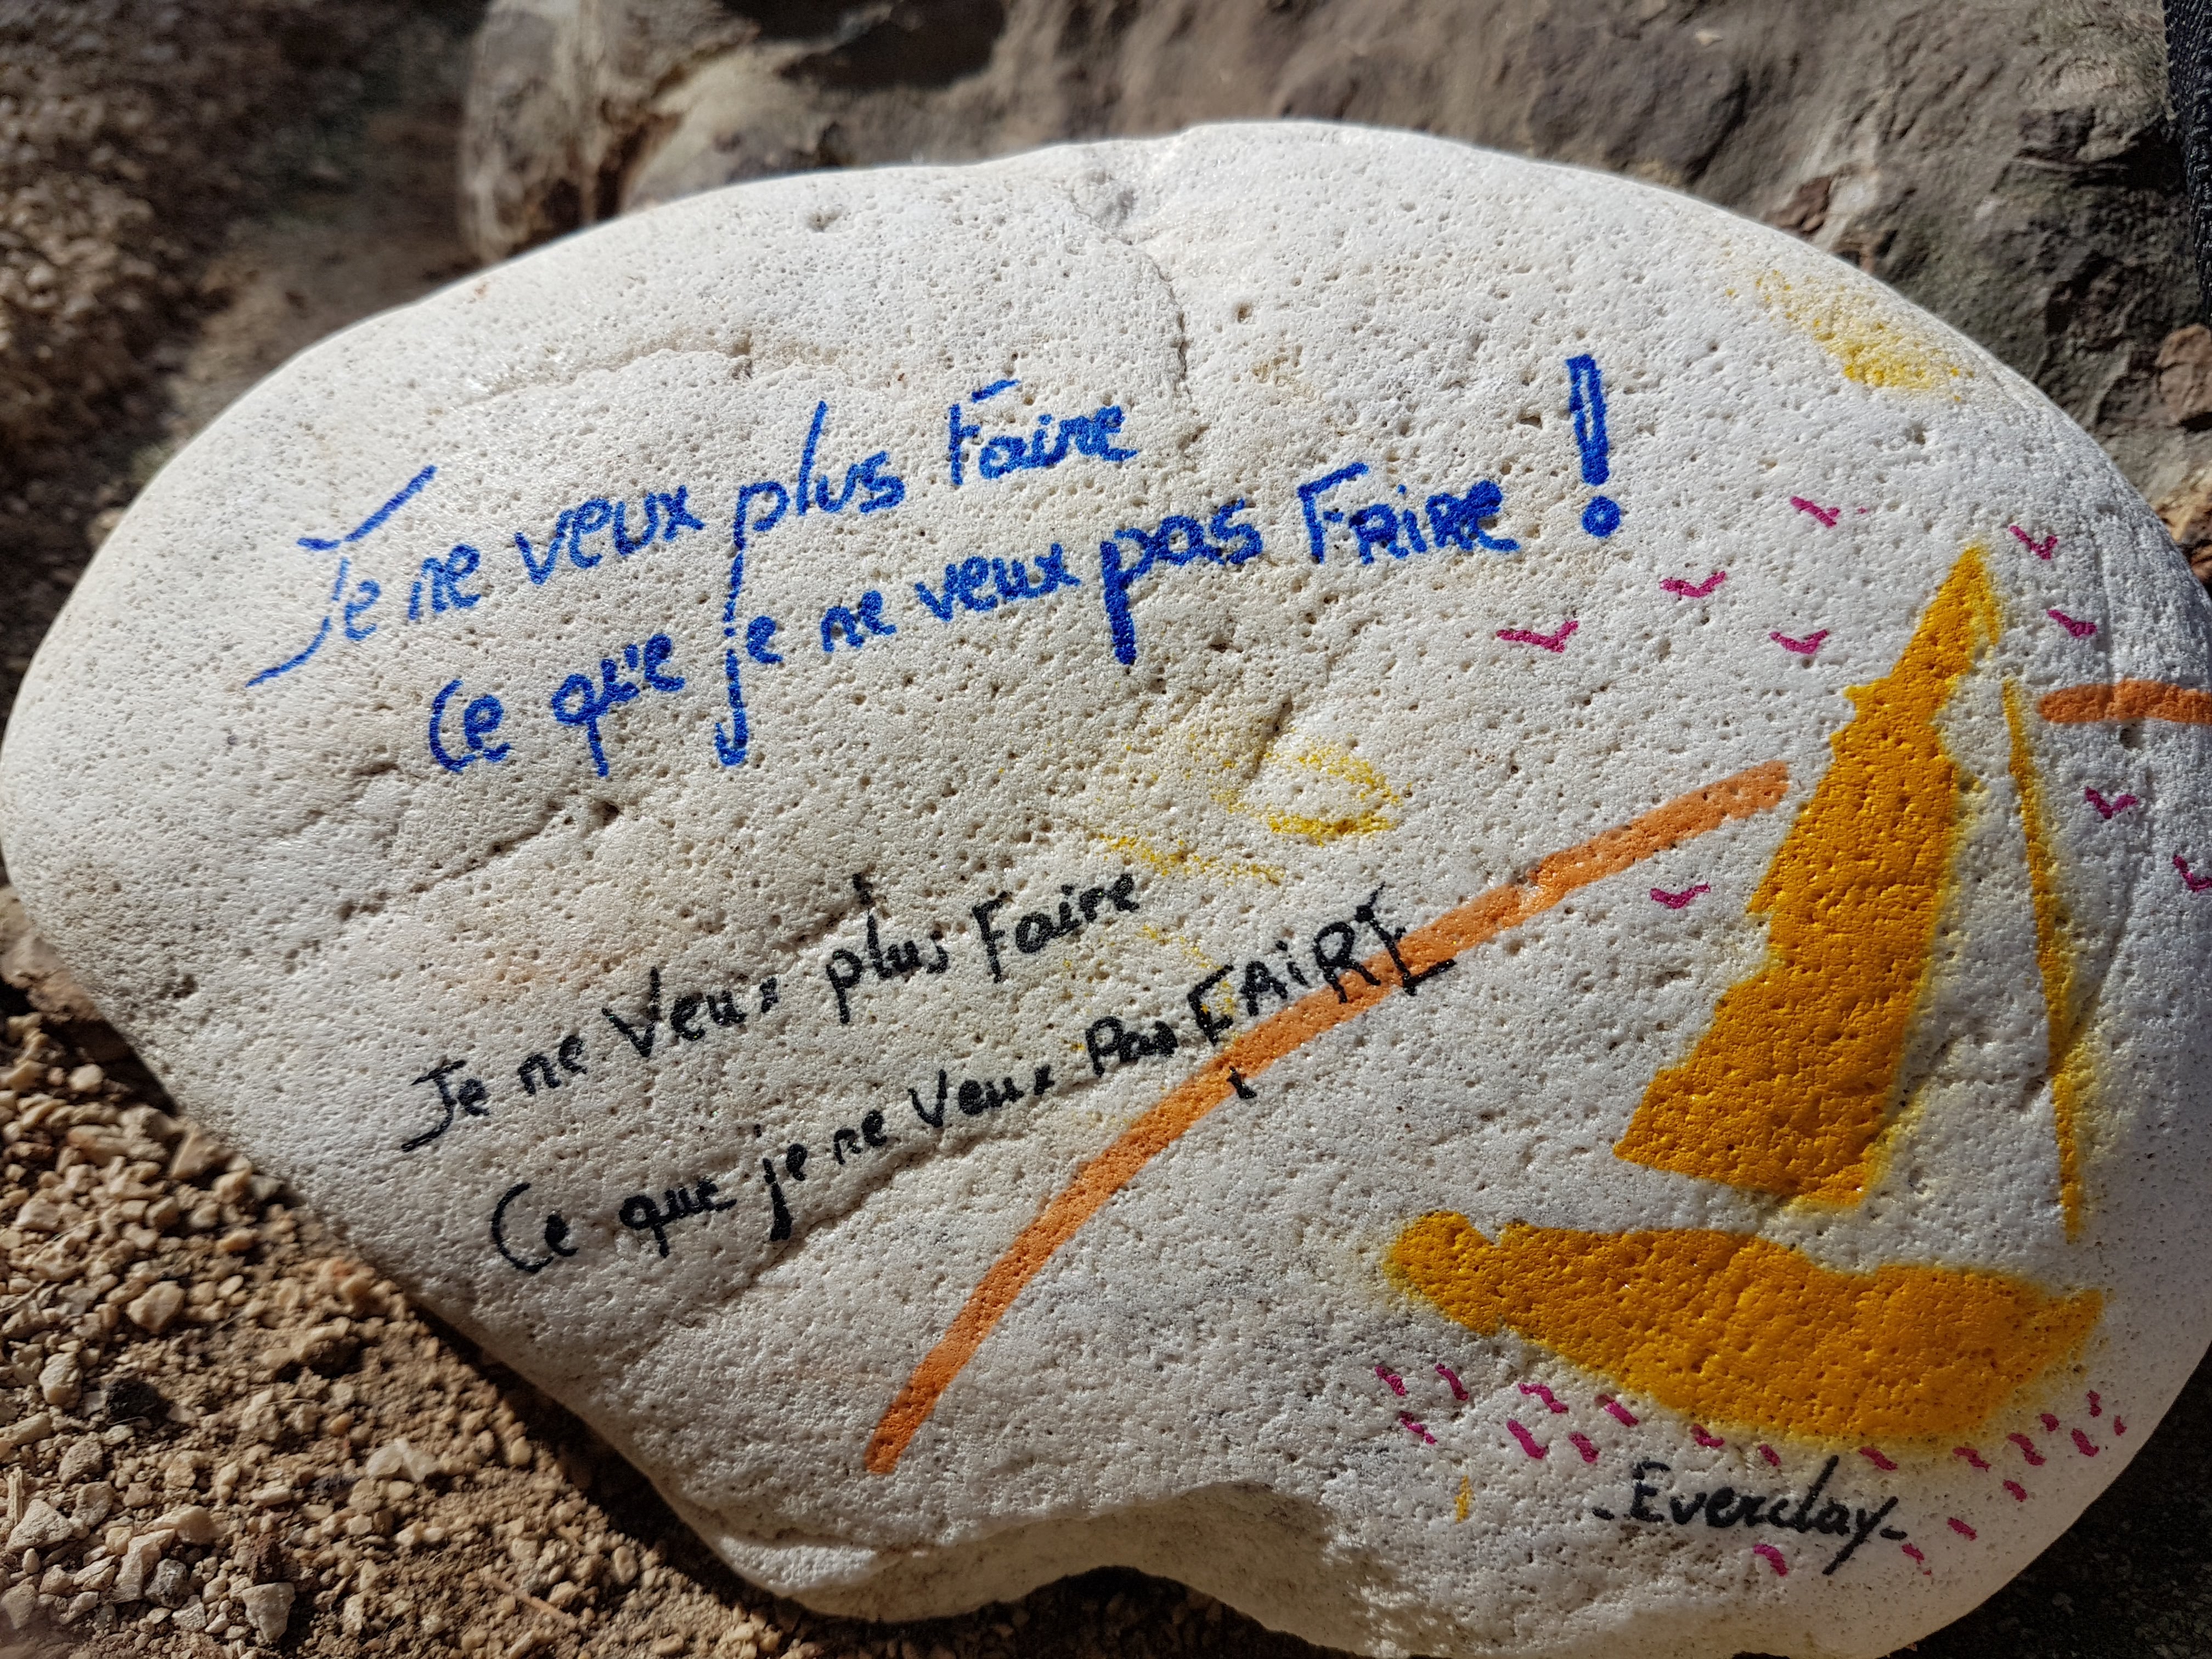 Je ne veux plus Faire
Ce que je ne veux pas FAiRE !
Je ne Veux plus Faire
Ce que je ne Veux Pas FAiRE
- Everday -